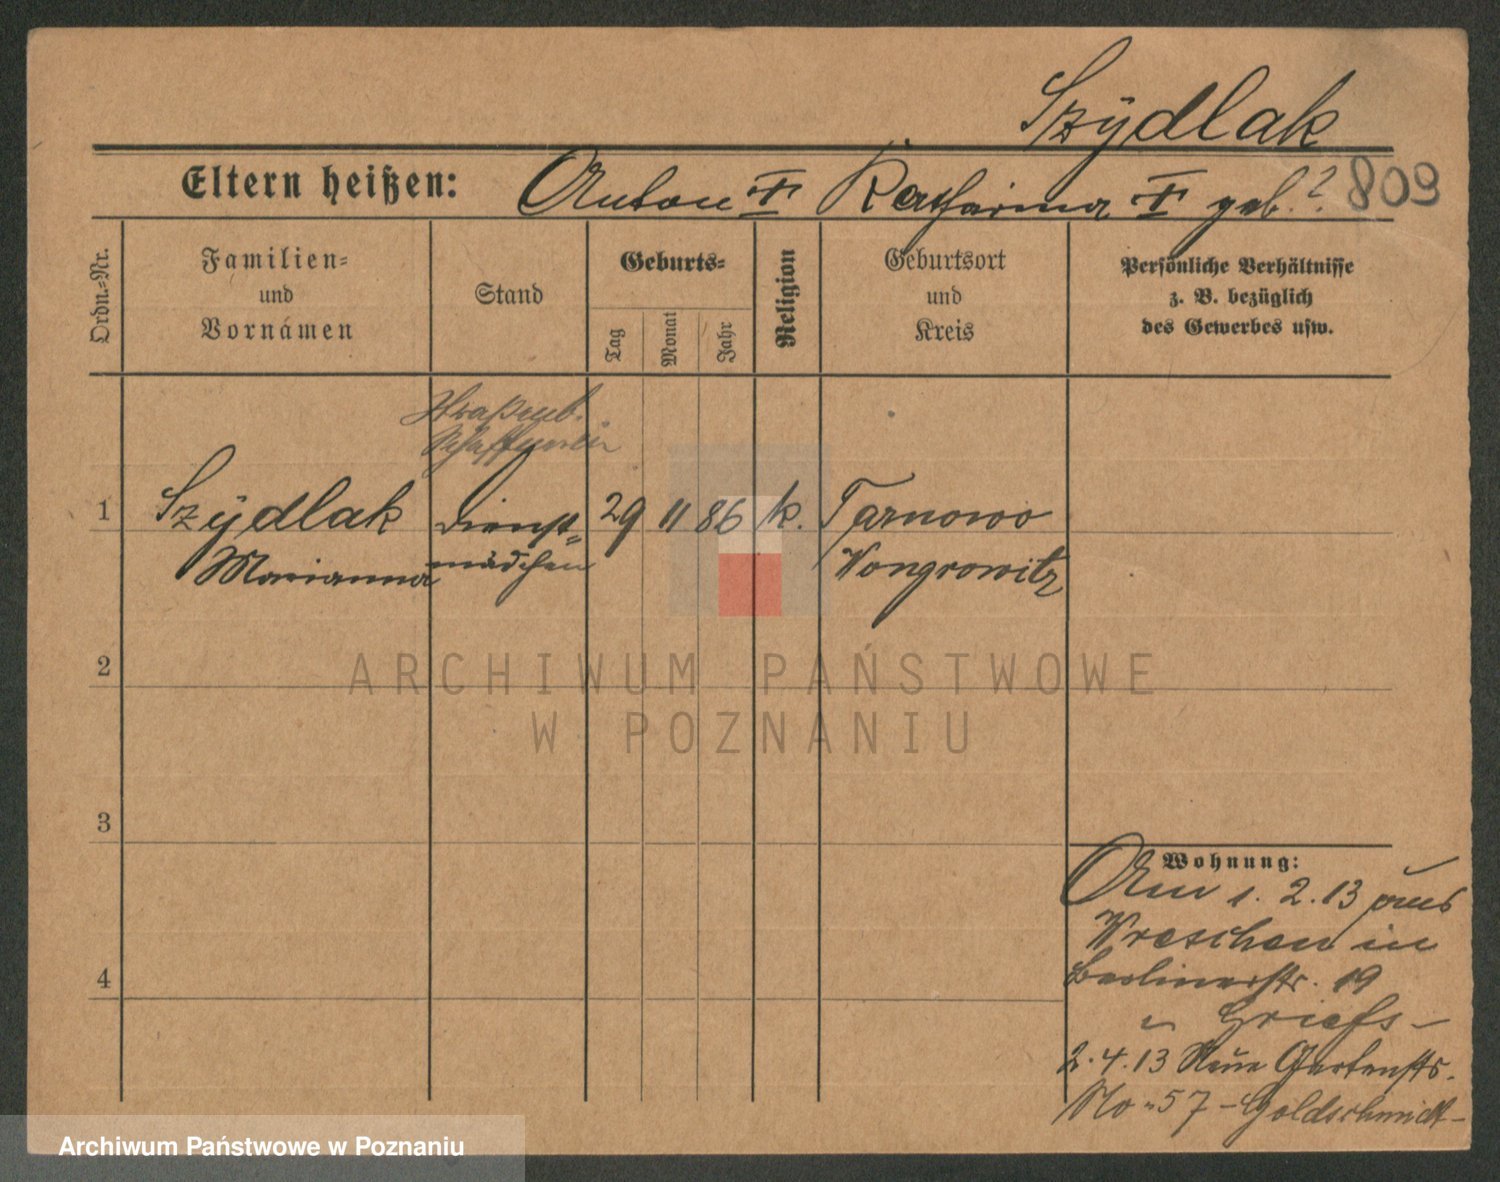 Szÿdlak
Eltern heißen: Anton † Katharina † geb. ? 809
Ordn.-Nr.
Familien-
und
Vornamen
Stand
Geburts-
Tag
Monat
Jahr
Religion
Geburtsort
und
Kreis
Persönliche Verhältnisse
z. B. bezüglich
des Gewerbes usw.
Straßenb.
Schaffnerin
1 Szÿdlak Dienst= 29 11 86 k. Tarnowo
Marianna mädchen Wongrowitz
2
3
4
Wohnung:
Am 1. 2. 13 aus
Wreschen in
Berlinerstr. 19
2. 4. 13 Neue Gartenstr.
No 57 - Goldschmidt -
ARCHIWUM PAŃSTWOWE
W POZNANIU
Archiwum Państwowe w Poznaniu